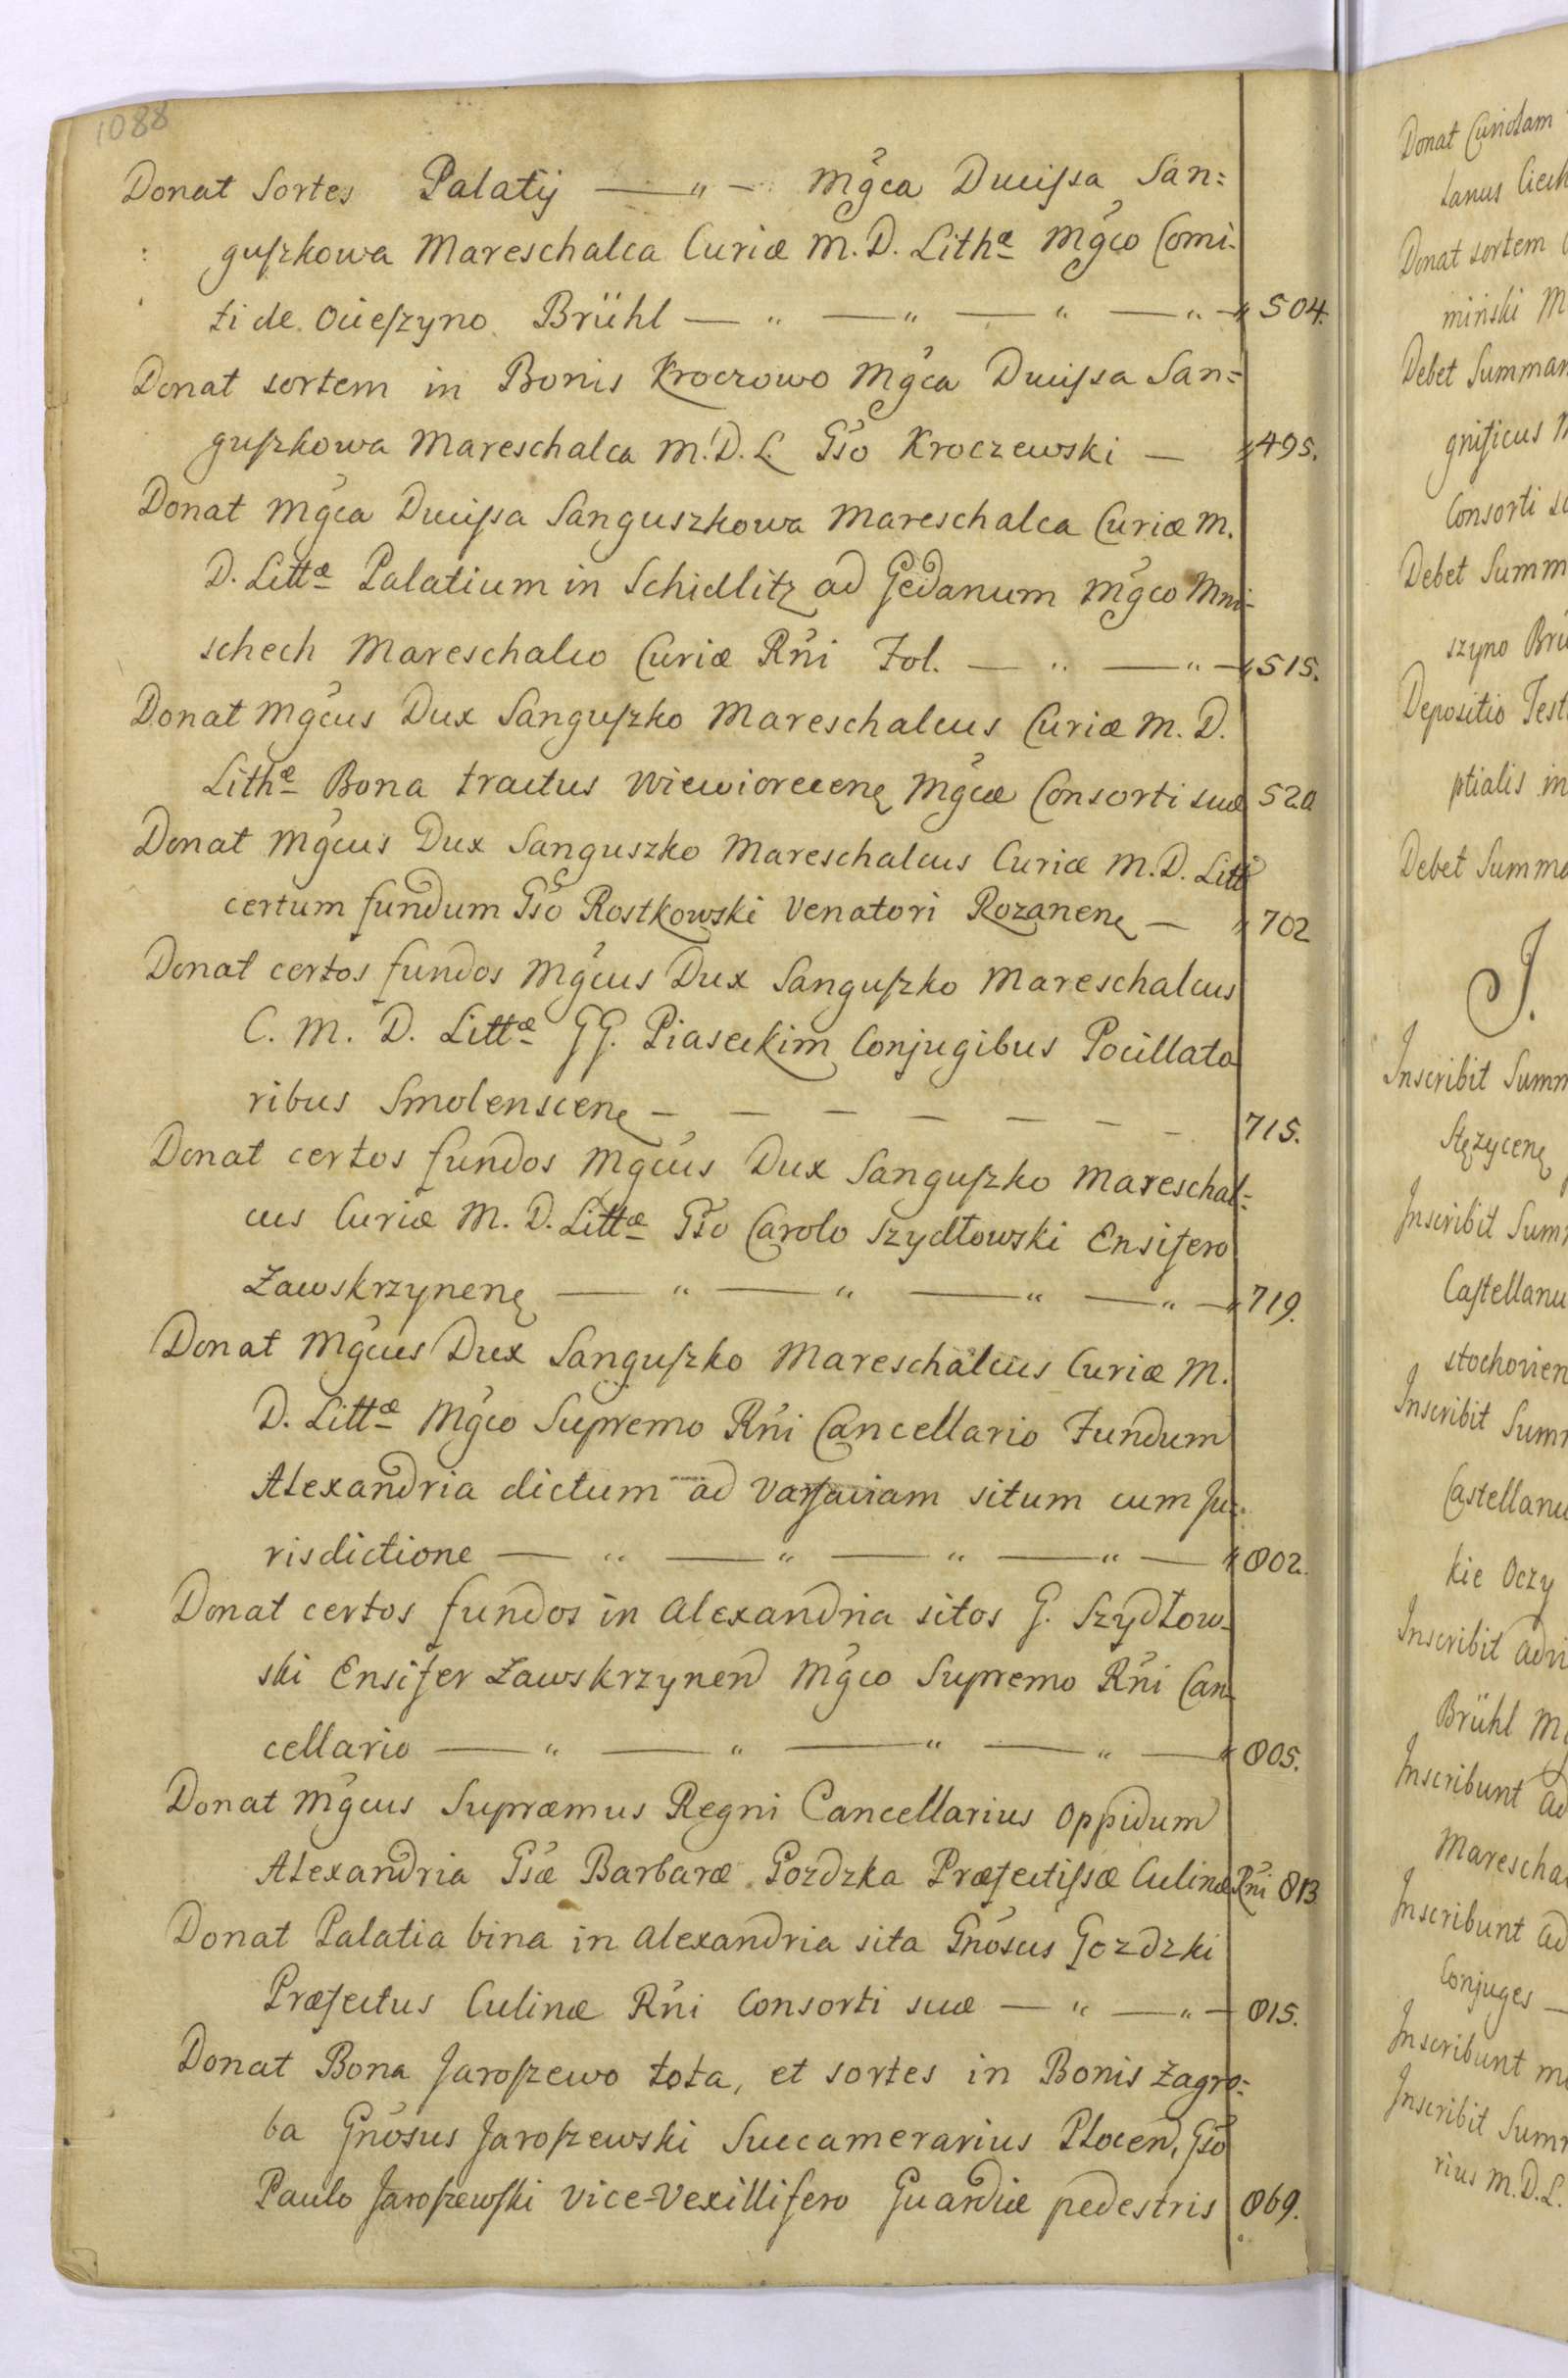 1088
Donat Sortes Palatÿ — " — Mgca Ducißa San=
gußkowa Mareschalca Curiæ M. D. Lithæ Mgco Comi-
ti de Ocießyno Brühl — " — " — " — " — 504.
Donat sortem in Bonis Kroczowo Mgca Ducißa San=
gußkowa Mareschalca M. D. L. Gso Kroczewski — " 495.
Donat Mgca Ducißa Sanguszkowa Mareschalca Curiæ M.
D. Littæ Palatium in Schidlitz ad Gedanum Mgco Mni-
schech Mareschalco Curiæ Rni Fol. — " — " — 515.
Donat Mgcus Dux Sangußko Mareschalcus Curiæ M. D.
Lithæ Bona tractus Wiewiorecenę Mgcæ Consorti suæ 520
Donat Mgcus Dux Sanguszko Mareschalcus Curiæ M. D. Litt
certum fundum Gso Rostkowski Venatori Rozanenę — " 702
Donat certos fundos Mgcus Dux Sangußko Mareschalcus
C. M. D. Littæ GG. Piaseckim Conjugibus Pocillato
ribus Smolenscenę — — — — — — — 715.
Donat certos fundos Mgcus Dux Sangußko Mareschal=
cus Curiæ M. D. Littæ Gso Carolo Szydłowski Ensifero
Zawskrzynenę — " — " — " — " — 719.
Donat Mgcus Dux Sangußko Mareschalcus Curiæ M.
D. Littæ Mgco Supremo Rni Cancellario Fundum
Alexandria dictum ad Varsaviam situm cum Ju=
risdictione — " — " — " — " — " 802.
Donat certos fundos in Alexandria sitos G. Szydłow-
ski Ensifer Zawskrzynen Mgco Supremo Rni Can-
cellario — " — " — " — " — " 805.
Donat Mgcus Supræmus Regni Cancellarius Oppidum
Alexandria Gsæ Barbaræ Gozdzka Præfectißæ Culinæ Rni 813
Donat Palatia bina in Alexandria sita Gnosus Gozdzki
Præfectus Culinæ Rni Consorti suæ — " — " — 815.
Donat Bona Jaroßewo tota, et sortes in Bonis Zagro=
ba Gnosus Jaroßewski Succamerarius Płocen, Gso
Paulo Jaroßewski Vice-Vexillifero Guardiæ pedestris 869.
Donat
tanus
Donat sortem
miński M
Debet Summam
gnificus M
Consorti
Debet Summ
szyno Brü
Depositio Test
ptialis in
Debet Summa
J.
Inscribit Summ
Stęzycenę
Inscribit Summ
Castellanu
stochovien
Inscribit Summ
Castellanu
kie Oczy
Inscribit
Brühl M
Inscribunt ad
Marescha
Inscribunt ad
Conjuges —
Inscribunt
Inscribit Summ
rius M. D. L.